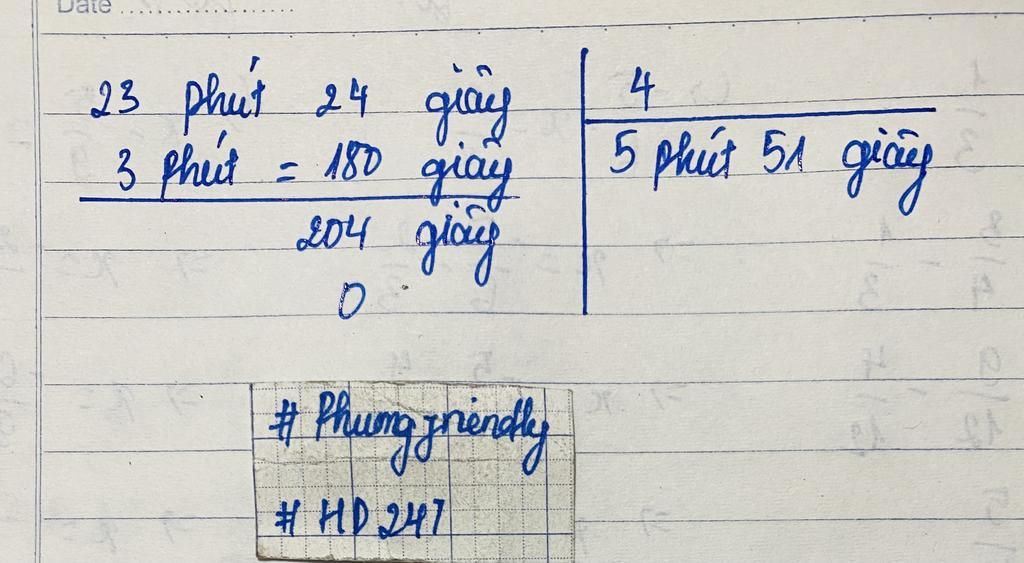 Date
23 phút 24 giây
3 phút = 180 giây
204 giây
0
4
5 phút 51 giây
# Phungfriendly
# HD 247